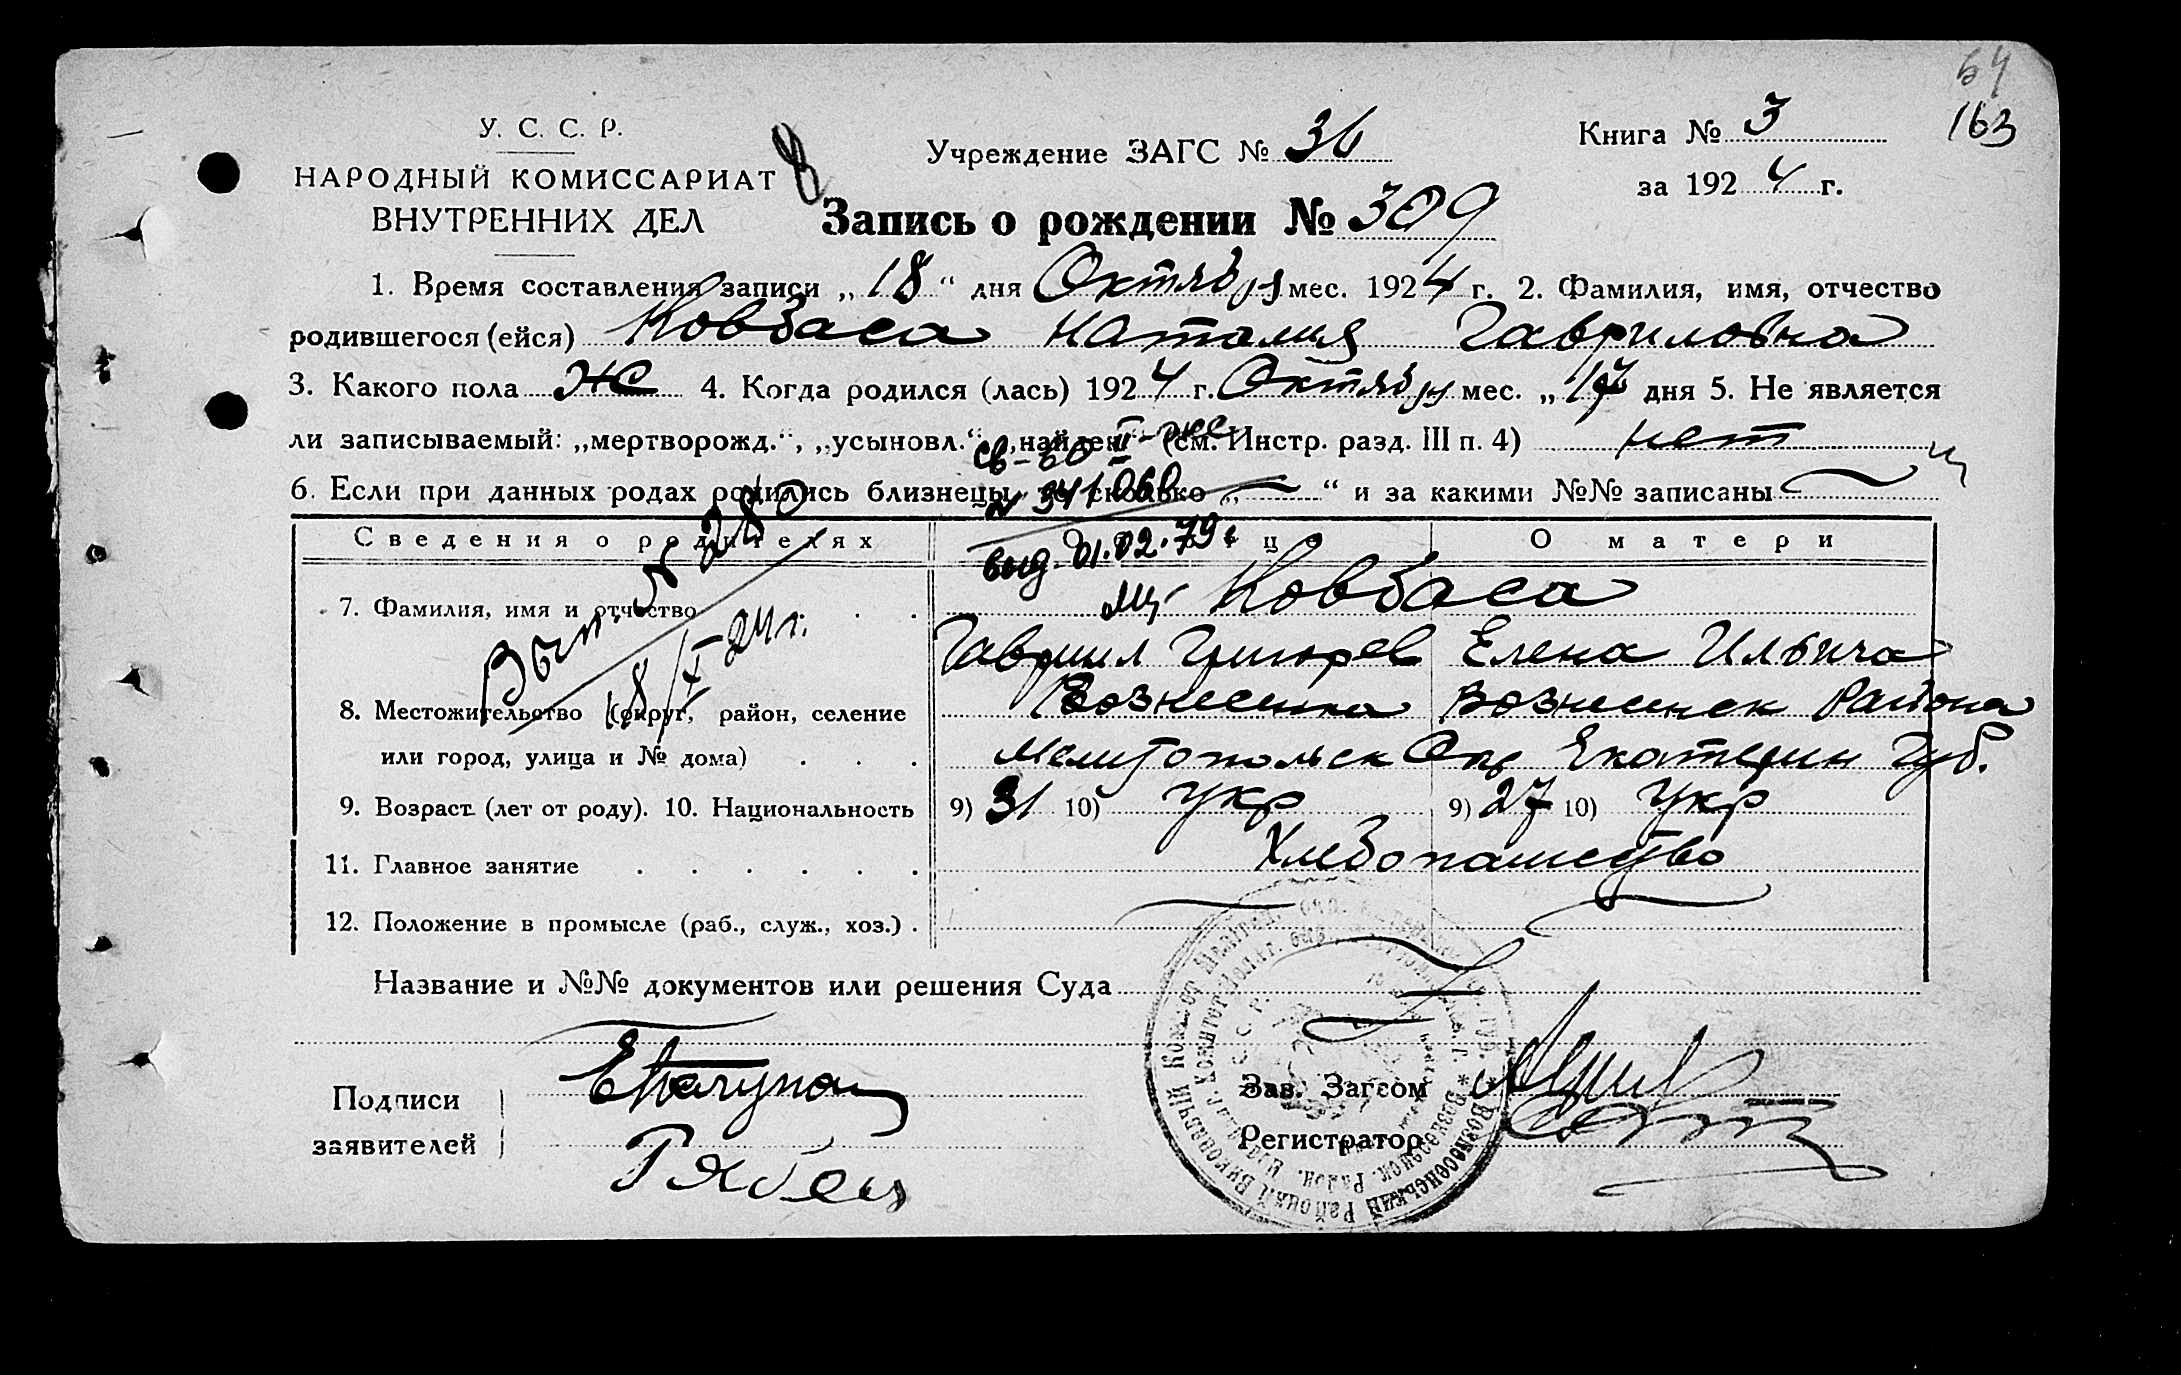 64
163
У. С. С. Р.
НАРОДНЫЙ КОМИССАРИАТ
ВНУТРЕННИХ ДЕЛ
8
Учреждение ЗАГС № 36
Книга № 3
за 1924 г.
Запись о рождении № 309
1. Время составления записи „18“ дня Октября мес. 1924 г. 2. Фамилия, имя, отчество
родившегося (ейся) Ковбаса Наталия Гавриловна
3. Какого пола Ж 4. Когда родился (лась) 1924 г. Октября мес. „17 дня 5. Не является
ли записываемый: „мертворожд.“, „усыновл.“, „найден“ (см. Инстр. разд. III п. 4) нет
6. Если при данных родах родились близнецы, то сколько „—“ и за какими №№ записаны —
№ 341060
выд. 01.02.79г
Вып. № 280
18/X-24 г.
Сведения о родителях
О отце
О матери
7. Фамилия, имя и отчество . . .
Ковбаса
Гавриил Григорев Елена Ильича
8. Местожительство (округ, район, селение
или город, улица и № дома) . . .
Вознесенка Вознесенск Района
Мелитопольск Окр Екатерин Губ.
9. Возраст (лет от роду). 10. Национальность
9) 31 10) укр
9) 27 10) укр
11. Главное занятие . . . . . .
Хлебопашество
12. Положение в промысле (раб., служ., хоз.) .
Название и №№ документов или решения Суда
Подписи
заявителей
Рябец
Зав. Загсом
Регистратор